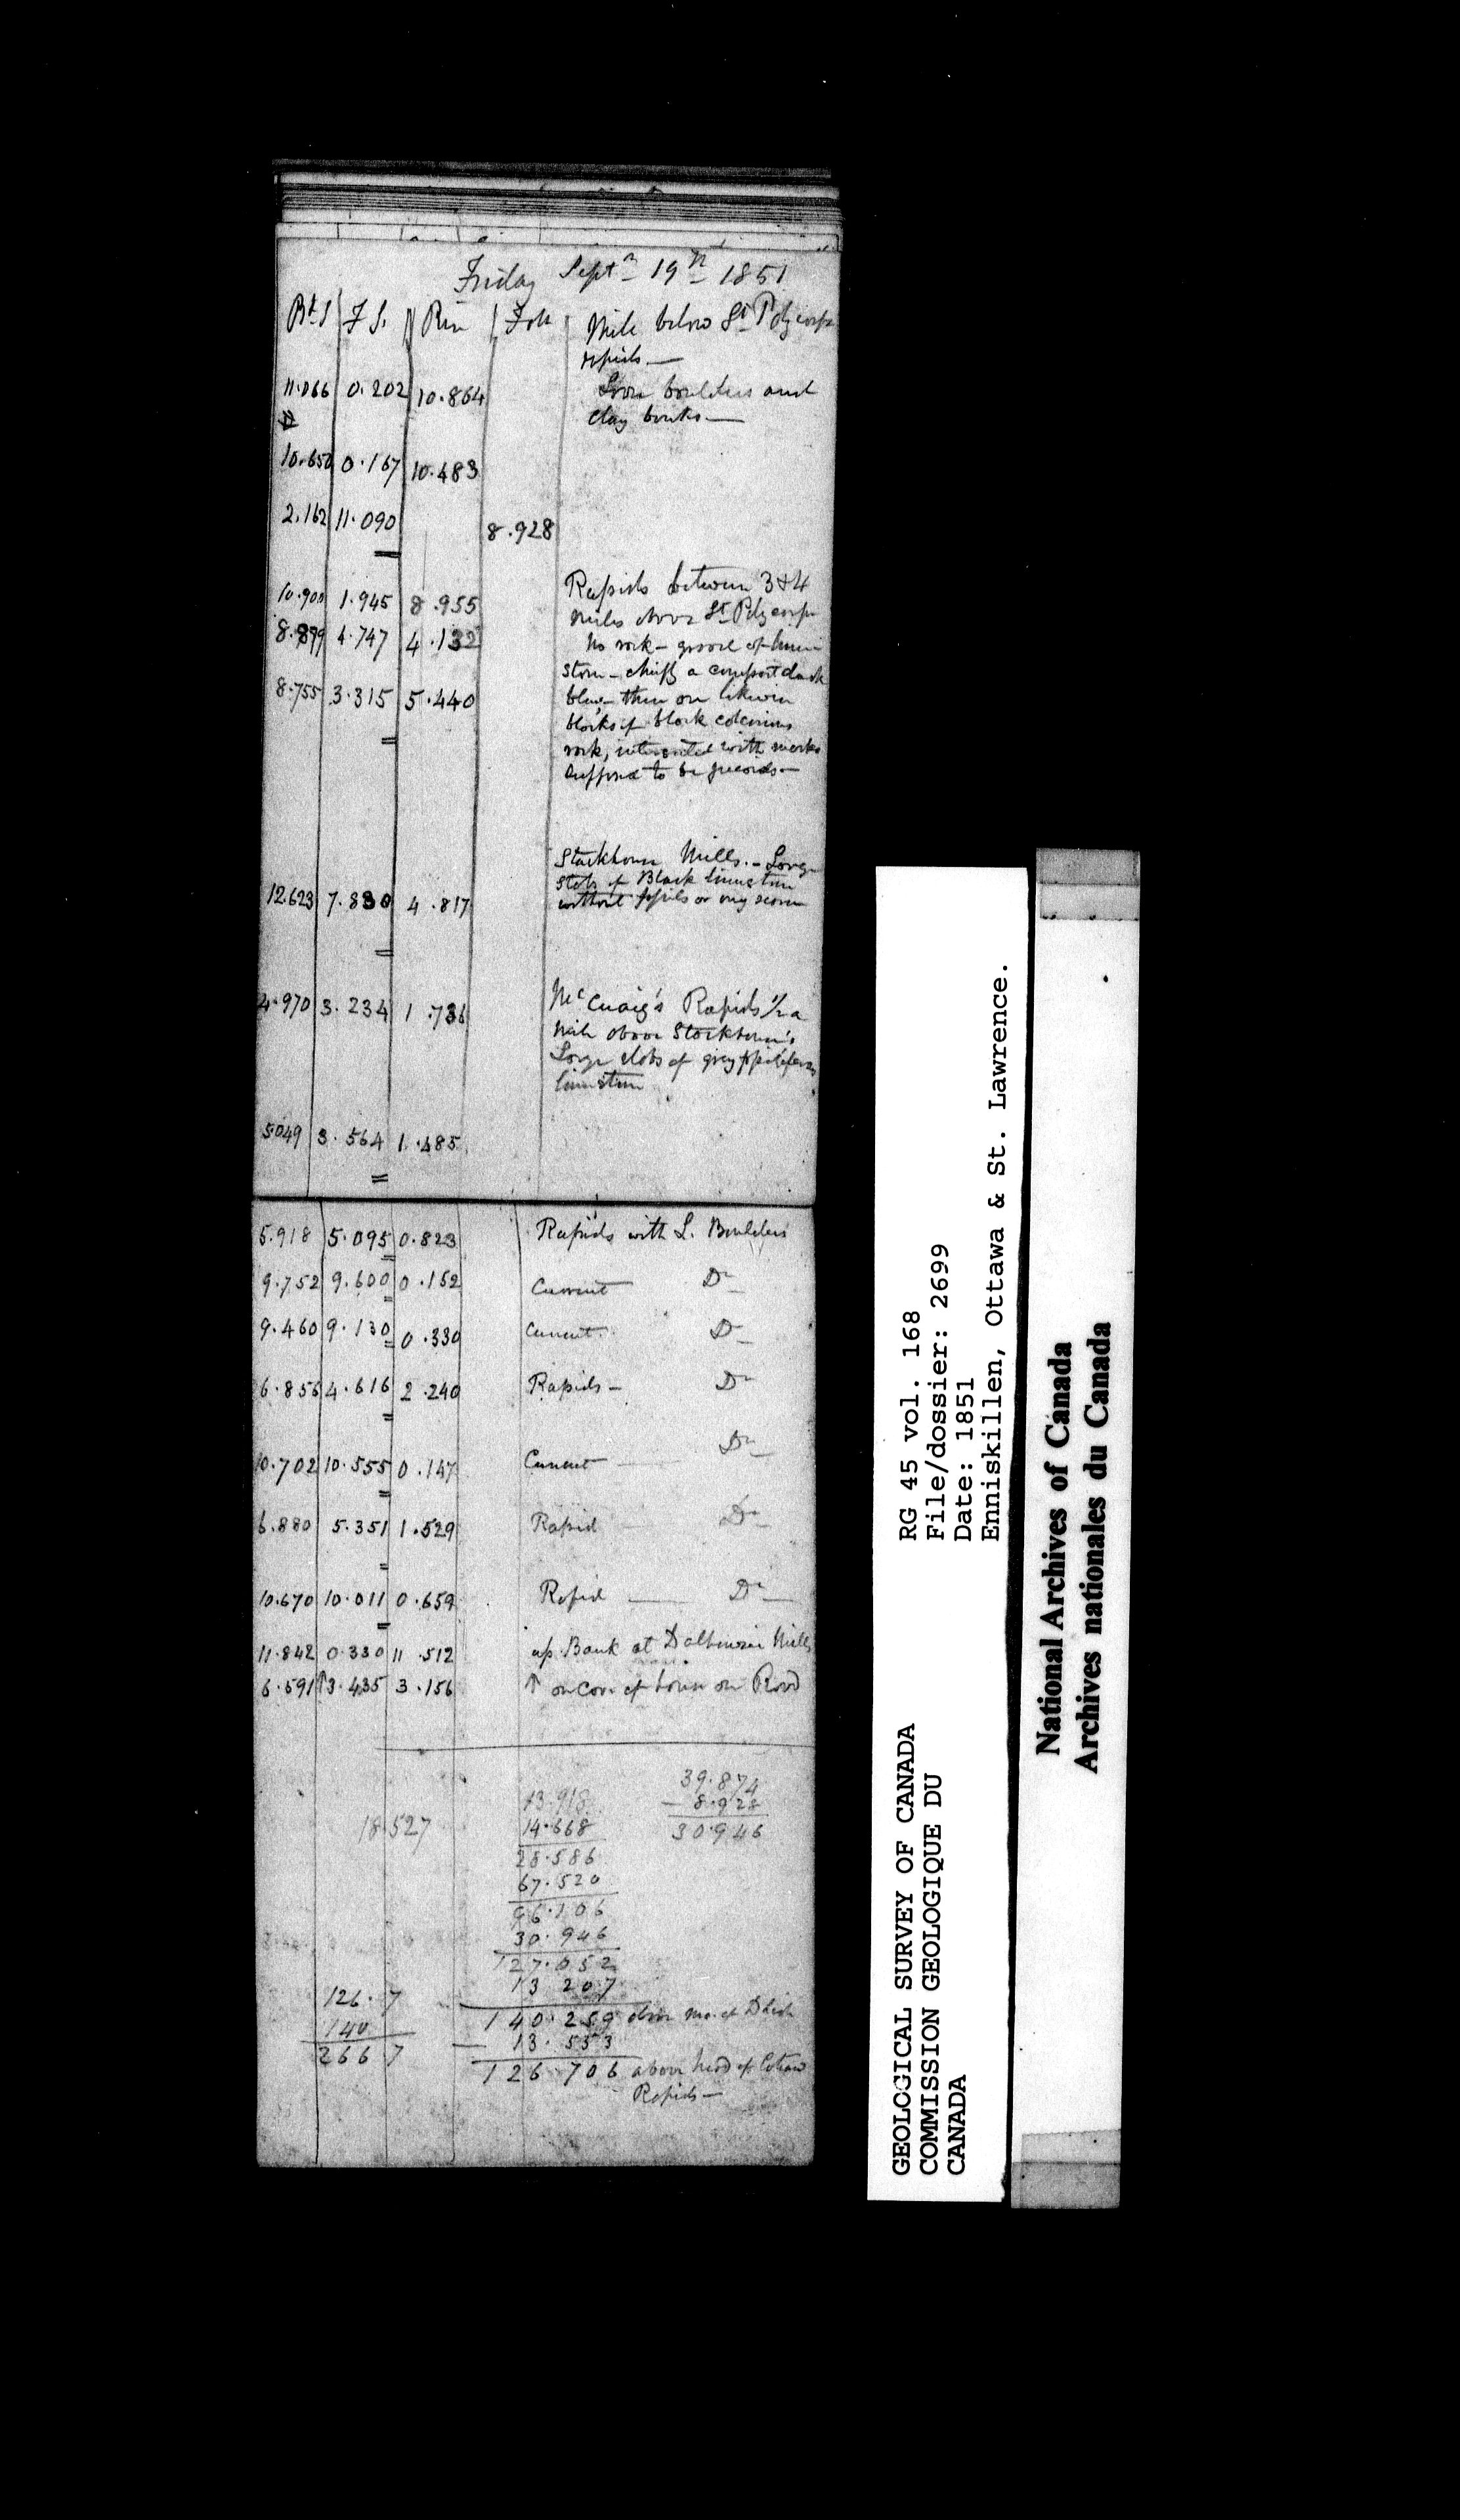 Friday Septr 19th 1851
Bk S F S. Rise Fall Mile below St Polycarp
rapids —
11.066 0.202 10.864 Loose boulders and
clay banks —
10.650 0.167 10.483
2.162 11.090 8.928
Rapids between 3 & 4
10.900 1.945 8.955 miles above St Polycarp
8.899 4.747 4.132 No rock – gravel of lime
stone – chiefly a compact dark
8.755 3.315 5.440 blue – there are likewise
blocks of black calcareous
rock, with marks
supposed to be fucoids —
Stackhouse Mills. – Large
slabs of Black limestone
12.623 7.830 4.817 without fossils or any
4.970 3.234 1.736 McCuaig's Rapids 1/2 a
mile above Stackhouse's
Large slabs of grey fossiliferous
limestone
5.049 3.564 1.485
5.918 5.095 0.823 Rapids with L. Boulders
9.752 9.600 0.152 Current Do
9.460 9.130 0.330 Current. Do
6.856 4.616 2.240 Rapids – Do
10.702 10.555 0.147 Current — Do
6.880 5.351 1.529 Rapid — Do
10.670 10.011 0.659 Rapid — Do
11.842 0.330 11.512 up Bank at Dalhousie Mills
6.591 ↑3.435 3.156 ↑ on Cor. of house on Road
39.874
13.918 — 8.928
18.527 14.668 30.946
28.586
67.520
96.106
30.946
127.052
126.7 13 207
140 140.259 above mo. of Delisle
— 13.553
266 7 126.706 above head of Coteau
Rapids —
GEOLOGICAL SURVEY OF CANADA
COMMISSION GEOLOGIQUE DU
CANADA
RG 45 vol. 168
File/dossier: 2699
Date: 1851
Enniskillen, Ottawa & St. Lawrence.
National Archives of Canada
Archives nationales du Canada